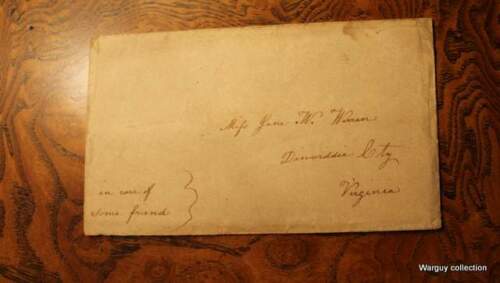 Miss Jane W. Warren
Dinwiddie Cty
Virginia
in care of
some friend
Warguy collection